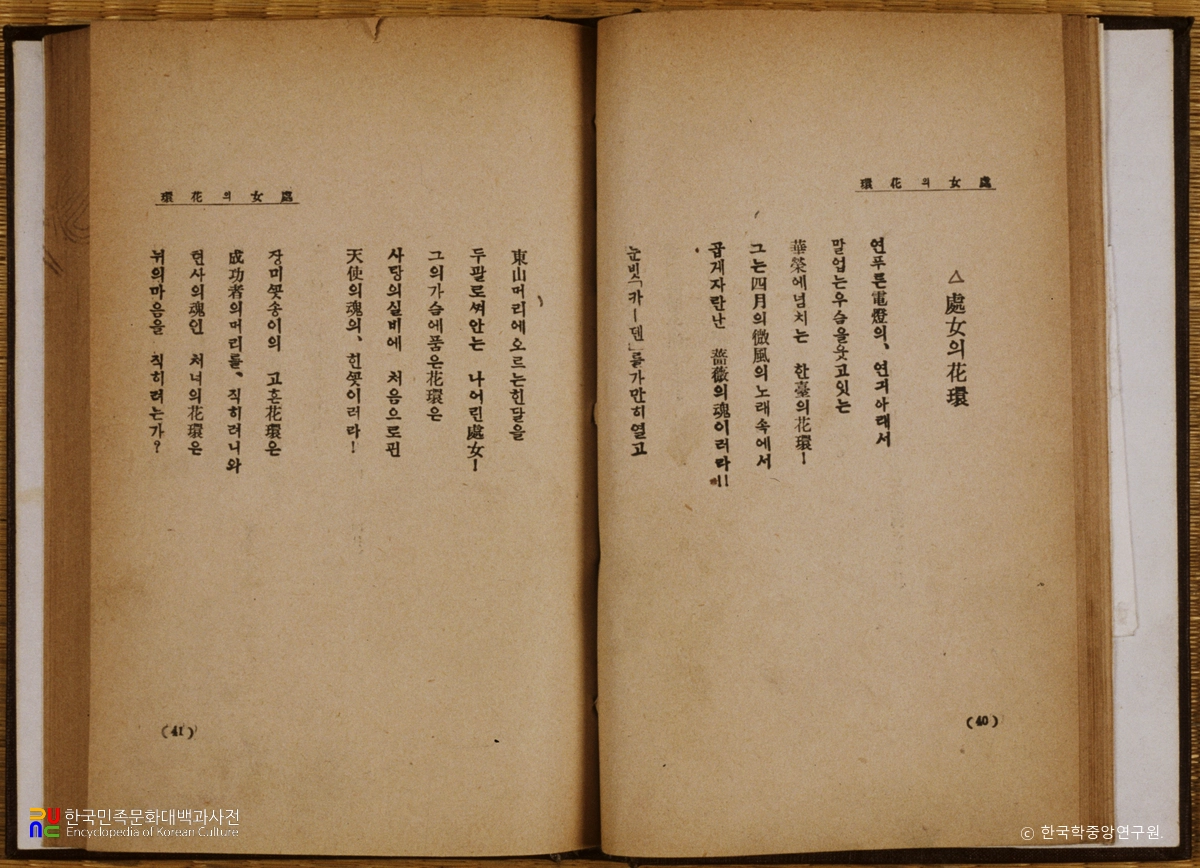 處女의花環
△處女의花環
연푸른電燈의、연긔아래서
말업는우슴을웃고잇는
華榮에넘치는 한臺의花環!
그는四月의微風의노래속에서
곱게자란난 薔薇의魂이러라!!
눈빗「카ー덴」를가만히열고
(40)
處女의花環
東山머리에오르는힌달을
두팔로껴안는 나어린處女!
그의가슴에품은花環은
사탕의실비에 처음으로핀
天使의魂의、힌꼿이러라!
장미꼿송이의 고흔花環은
成功者의머리를、직히려니와
현사의魂인 처녀의花環은
뉘의마음을 직히려는가?
(41)
한국민족문화대백과사전
Encyclopedia of Korean Culture
© 한국학중앙연구원.